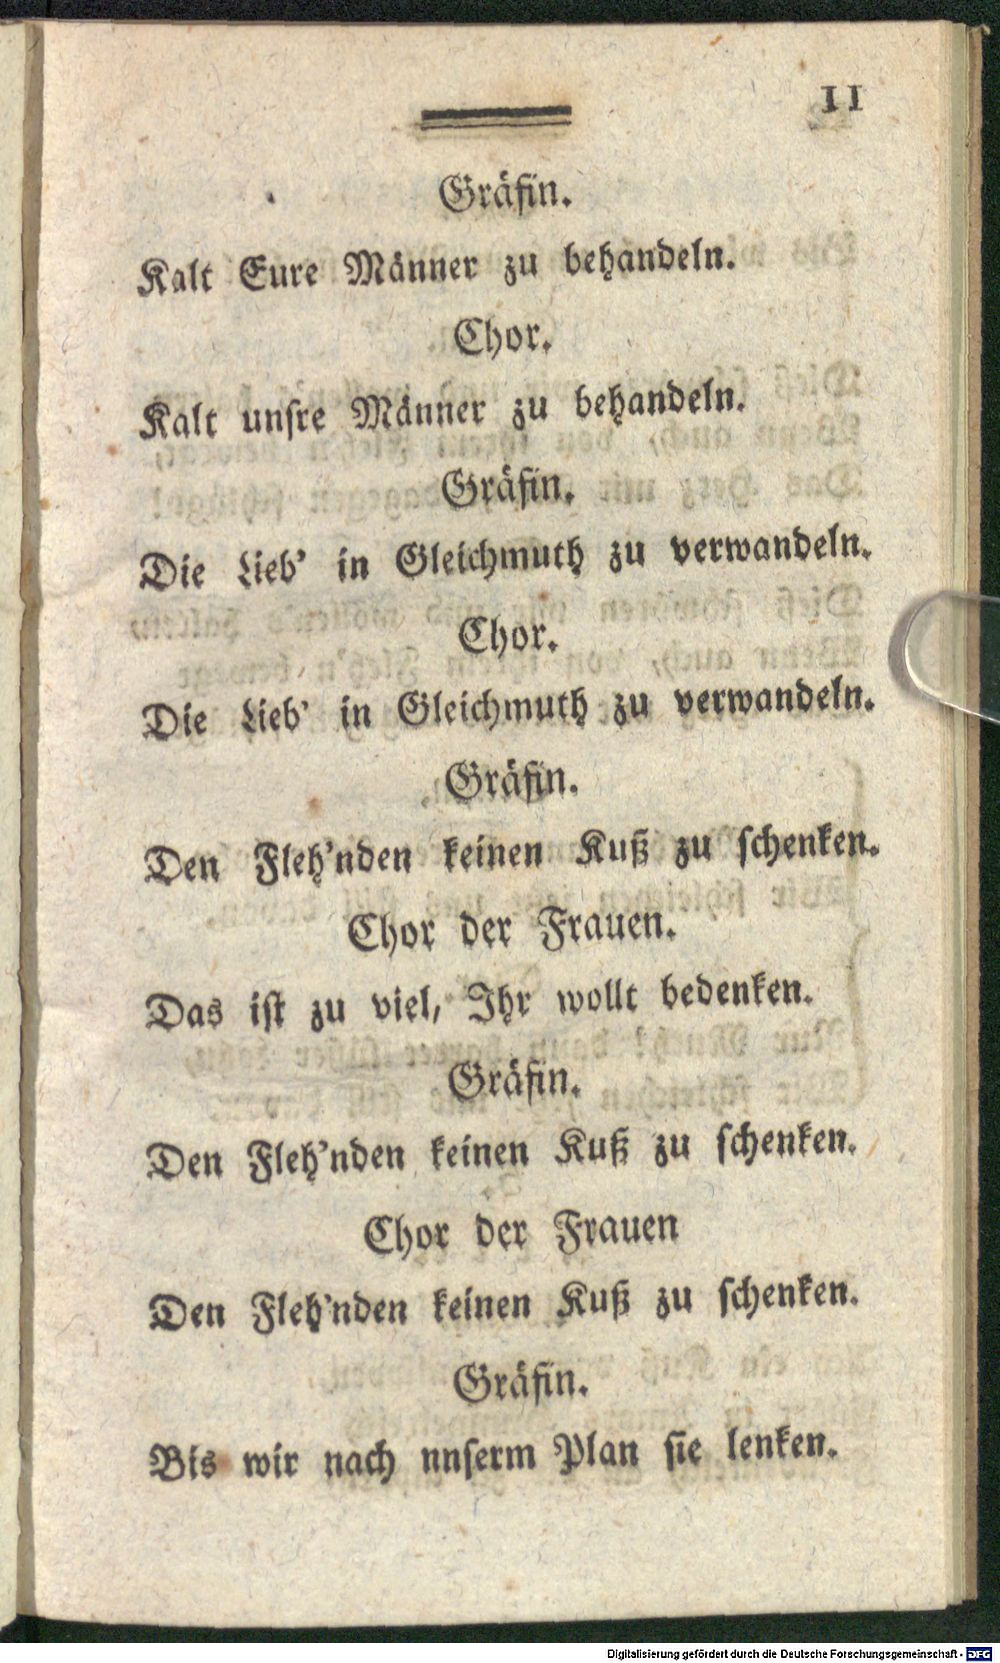 11
Gräfin.
Kalt Eure Männer zu behandeln.
Chor.
Kalt unsre Männer zu behandeln.
Gräfin.
Die Lieb' in Gleichmuth zu verwandeln.
Chor.
Die Lieb' in Gleichmuth zu verwandeln.
Gräfin.
Den Fleh'nden keinen Kuß zu schenken.
Chor der Frauen.
Das ist zu viel, Ihr wollt bedenken.
Gräfin.
Den Fleh'nden keinen Kuß zu schenken.
Chor der Frauen
Den Fleh'nden keinen Kuß zu schenken.
Gräfin.
Bis wir nach nnserm Plan sie lenken.
Digitalisierung gefördert durch die Deutsche Forschungsgemeinschaft - DFG